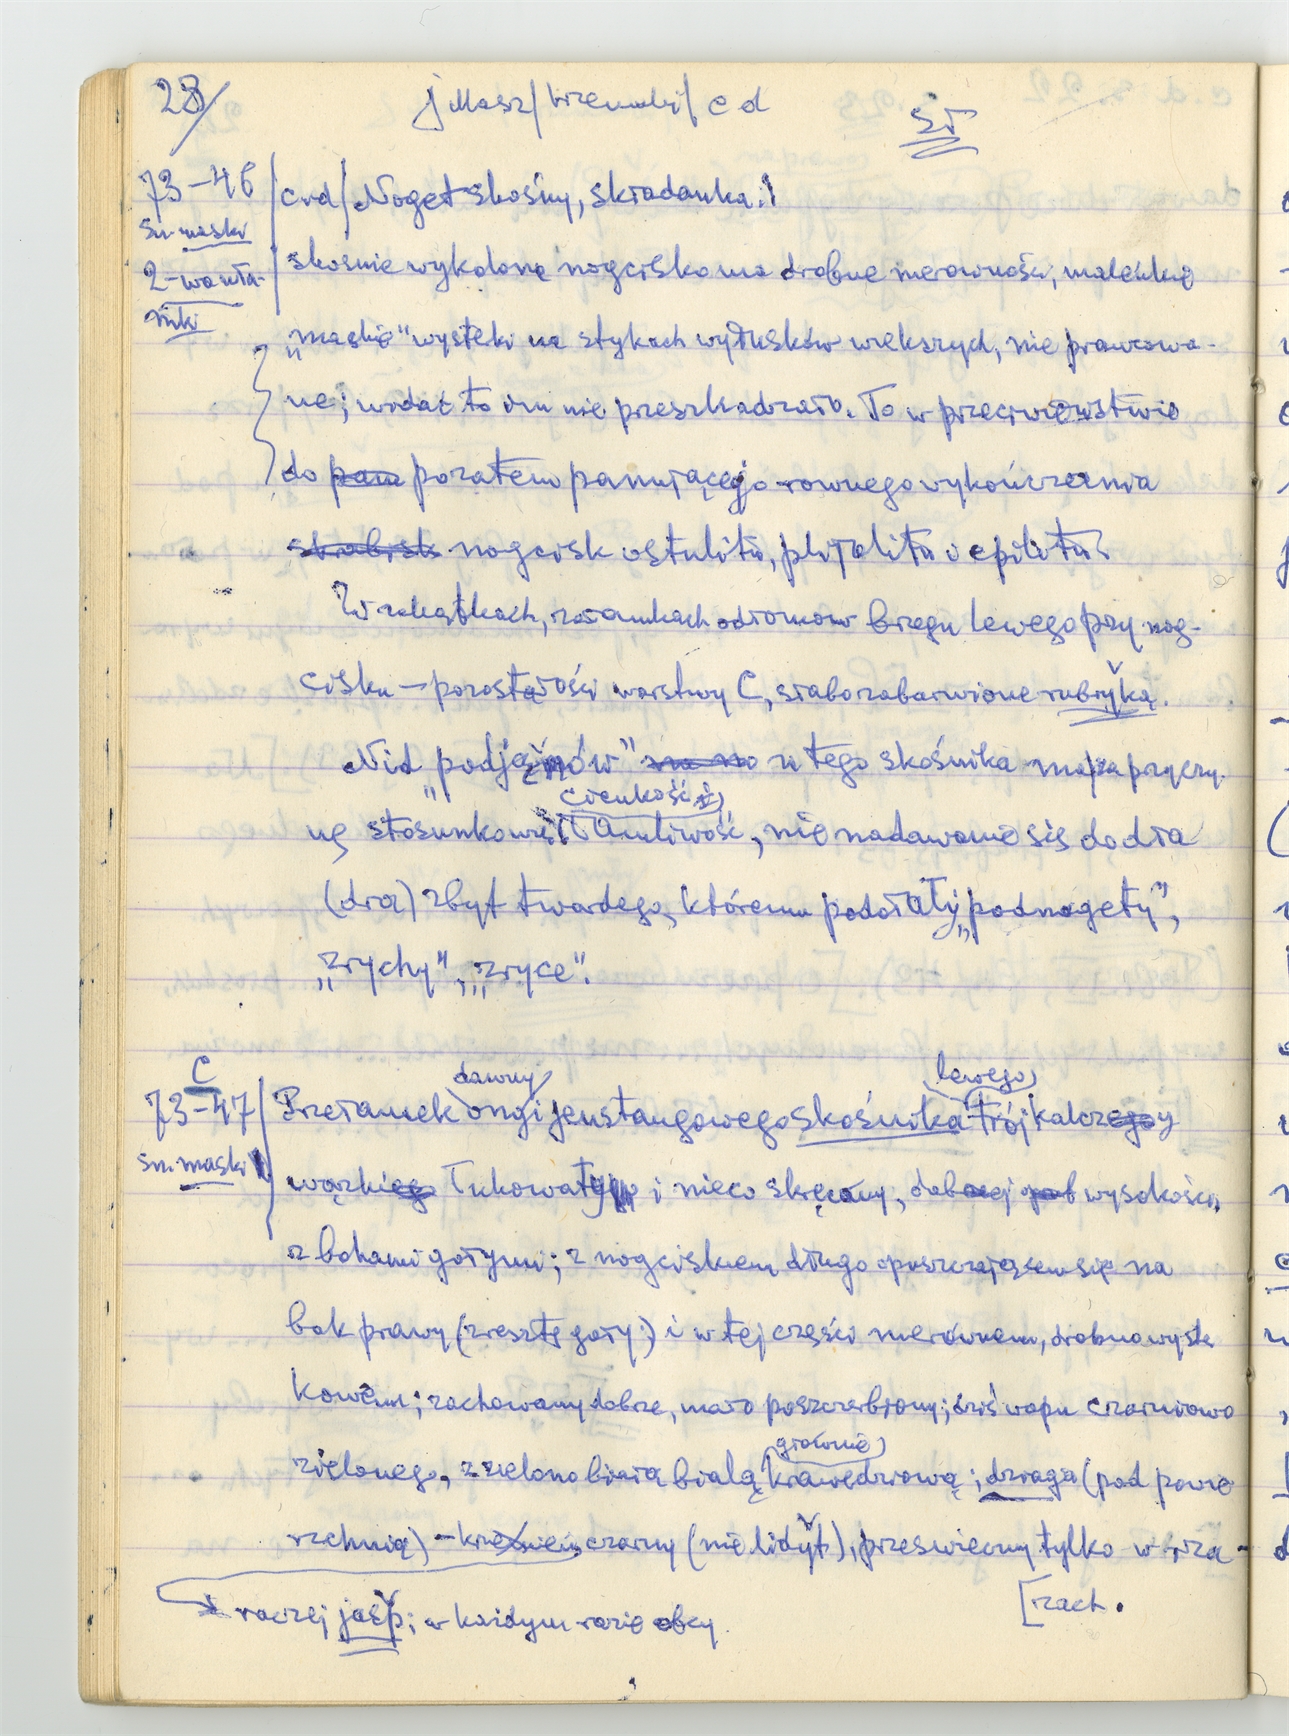 28/ J Masz/krzemuki/ c d
ŚŤ
73-46 /c.d/ Noget skośny, składanka.
śn. maski
2-warła-
nki
skośnie wykolonę nogcisko ma drobne nierówności, maleńkie
„maskie" wystęki na stykach wyłusków wiekszych, nie prawcowa-
ne; widać to im nie przeszkadzało. To w przeciwieństwie
do pozatem panującego rownego wykończenia
nogcisk ostulitu, plitolitu i epilitu.
W zakątkach, załamkach odłomów brzegu lewego przy nog-
cisku — pozostałości warstwy C, słabo zabarwione rubryką.
Nid „podjęznów" u tego skośnika ma za przyczy-
nę stosunkową cienkość i łamliwość, nie nadawanie się do dła
(dra) zbyt twardego, któremu podołały „podnogety",
„zrychy", „zryce".
C
73-47/ Przełamek dawny ongi jeustangowego skośnika lewego trójkalczy
śn. maski
wązki łukowaty i nieco skręcony, wysokości,
z bokami gołymi; z nogciskiem długo opuszczającem się na
bok prawy (zresztę goły) i w tej części nierównem, drobnowystę
kowém; zachowany dobrze, mało poszczerbiony; dziś wapu czarniowo
zielonego, z zielono białą białą głównie krawędziową; dziaga (pod powie
rzchnią) — czarny (nie lidyt), przeświecny tylko w rza-
[rzach.
raczej jašp; w każdym razie obcy